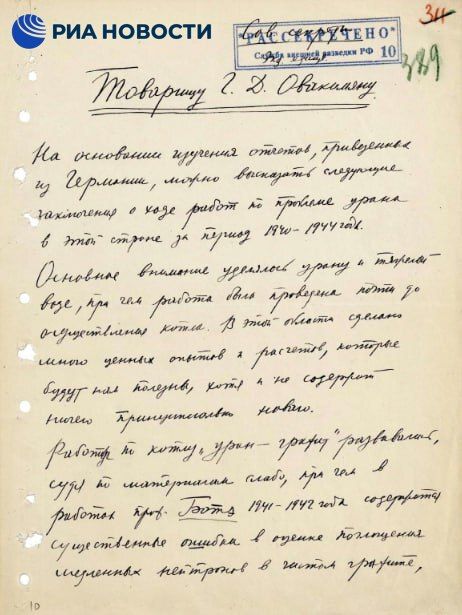 РИА НОВОСТИ
Сов. секретно
34
"РАССЕКРЕЧЕНО"
Служба внешней разведки РФ 10
389
Товарищу Г. Д. Овакимяну.
На основании изучения отчетов, привезенных
из Германии, можно высказать следующие
заключения о ходе работ по проблеме урана
в этой стране за период 1940-1944 года.
Основное внимание уделялось урану и тяжелой
воде, при чем работа была проведена почти до
осуществления котла. В этой области сделано
много ценных опытов и расчетов, которые
будут нам полезны, хотя и не содержат
ничего принципиально нового.
Работы по котлу „уран — графит" развивались,
судя по материалам слабо, при чем в
работах проф.Ботэ 1941-1942 года содержится
существенные ошибка в оценке поглощения
медленных нейтронов в чистом графите,
10